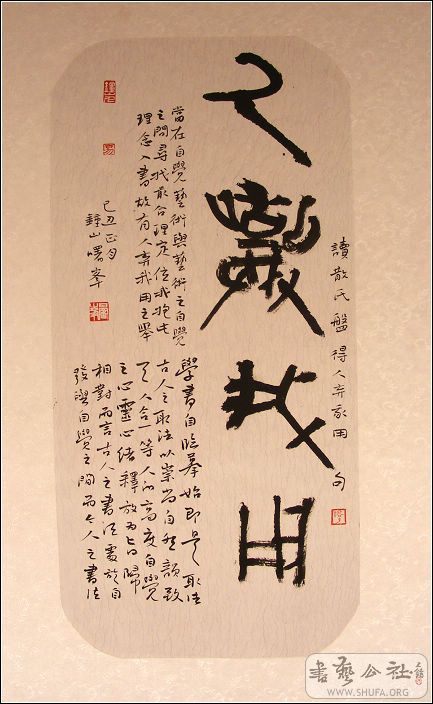 人棄我用
讀散氏盤得人弃我用句
學書自臨摹始即是取法
古人之取法以崇尚自然致
天人合一等人的高度自覺
之心靈心緒釋放为旨歸
相對而言古人之書法處於自
發與自覺之間而今人之書法
當在自覺藝術與藝術之自覺
之間尋找最合理定位我抱此
理念入書故有人弃我用之舉
己丑正月
鍾山曙峯
書藝公社
WWW.SHUFA.ORG